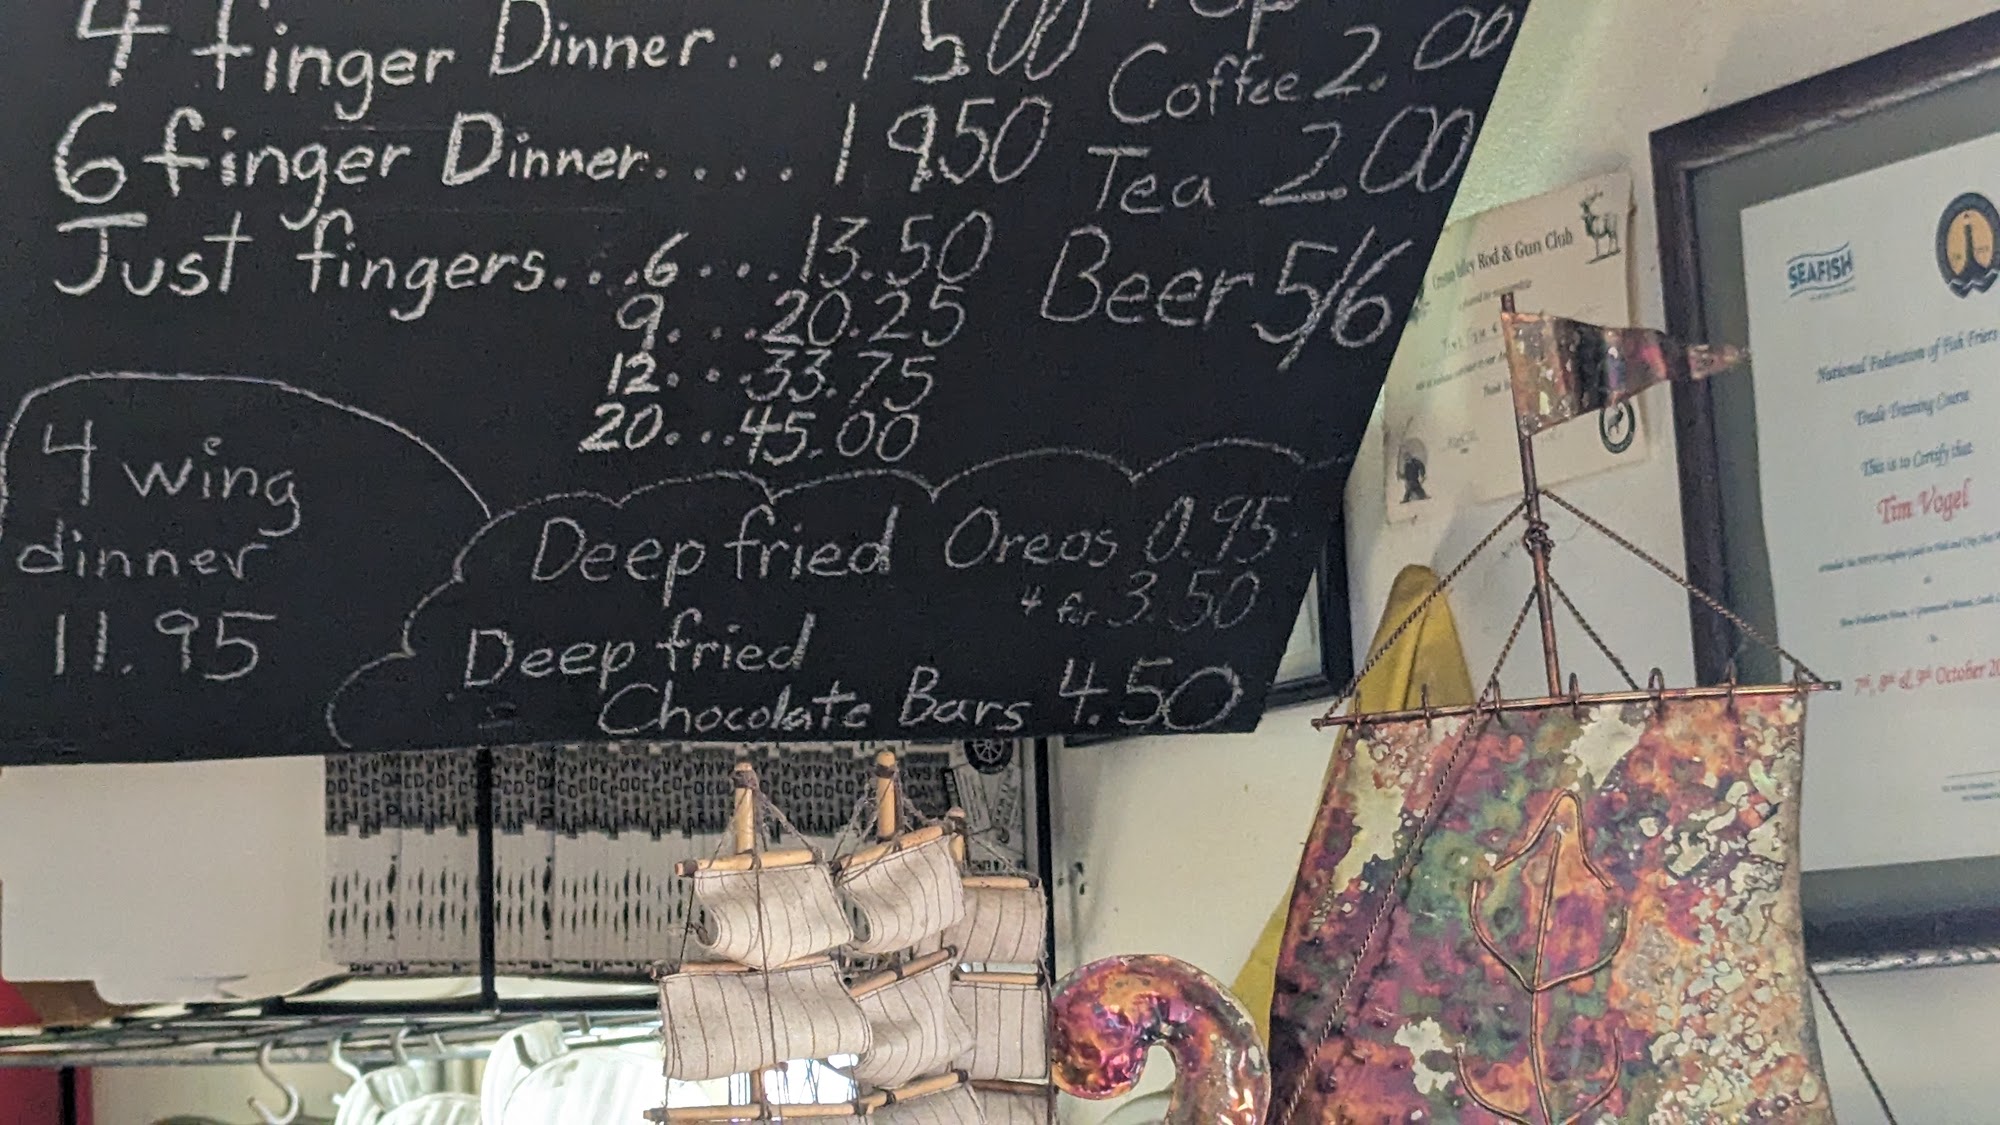 4 finger Dinner... 15.00
6 finger Dinner.... 19.50
Just fingers...6...13.50
9...20.25
12...33.75
20...45.00
Coffee 2.00
Tea 2.00
Beer 5/6
4 wing
dinner
11.95
Deep fried Oreos 0.95
4 for 3.50
Deep fried
Chocolate Bars 4.50
Rod & Gun Club
SEAFISH
National Federation of Fish Friers
Trade Training Course
This is to Certify that
Tim Vogel
7th, 8th & 9th October